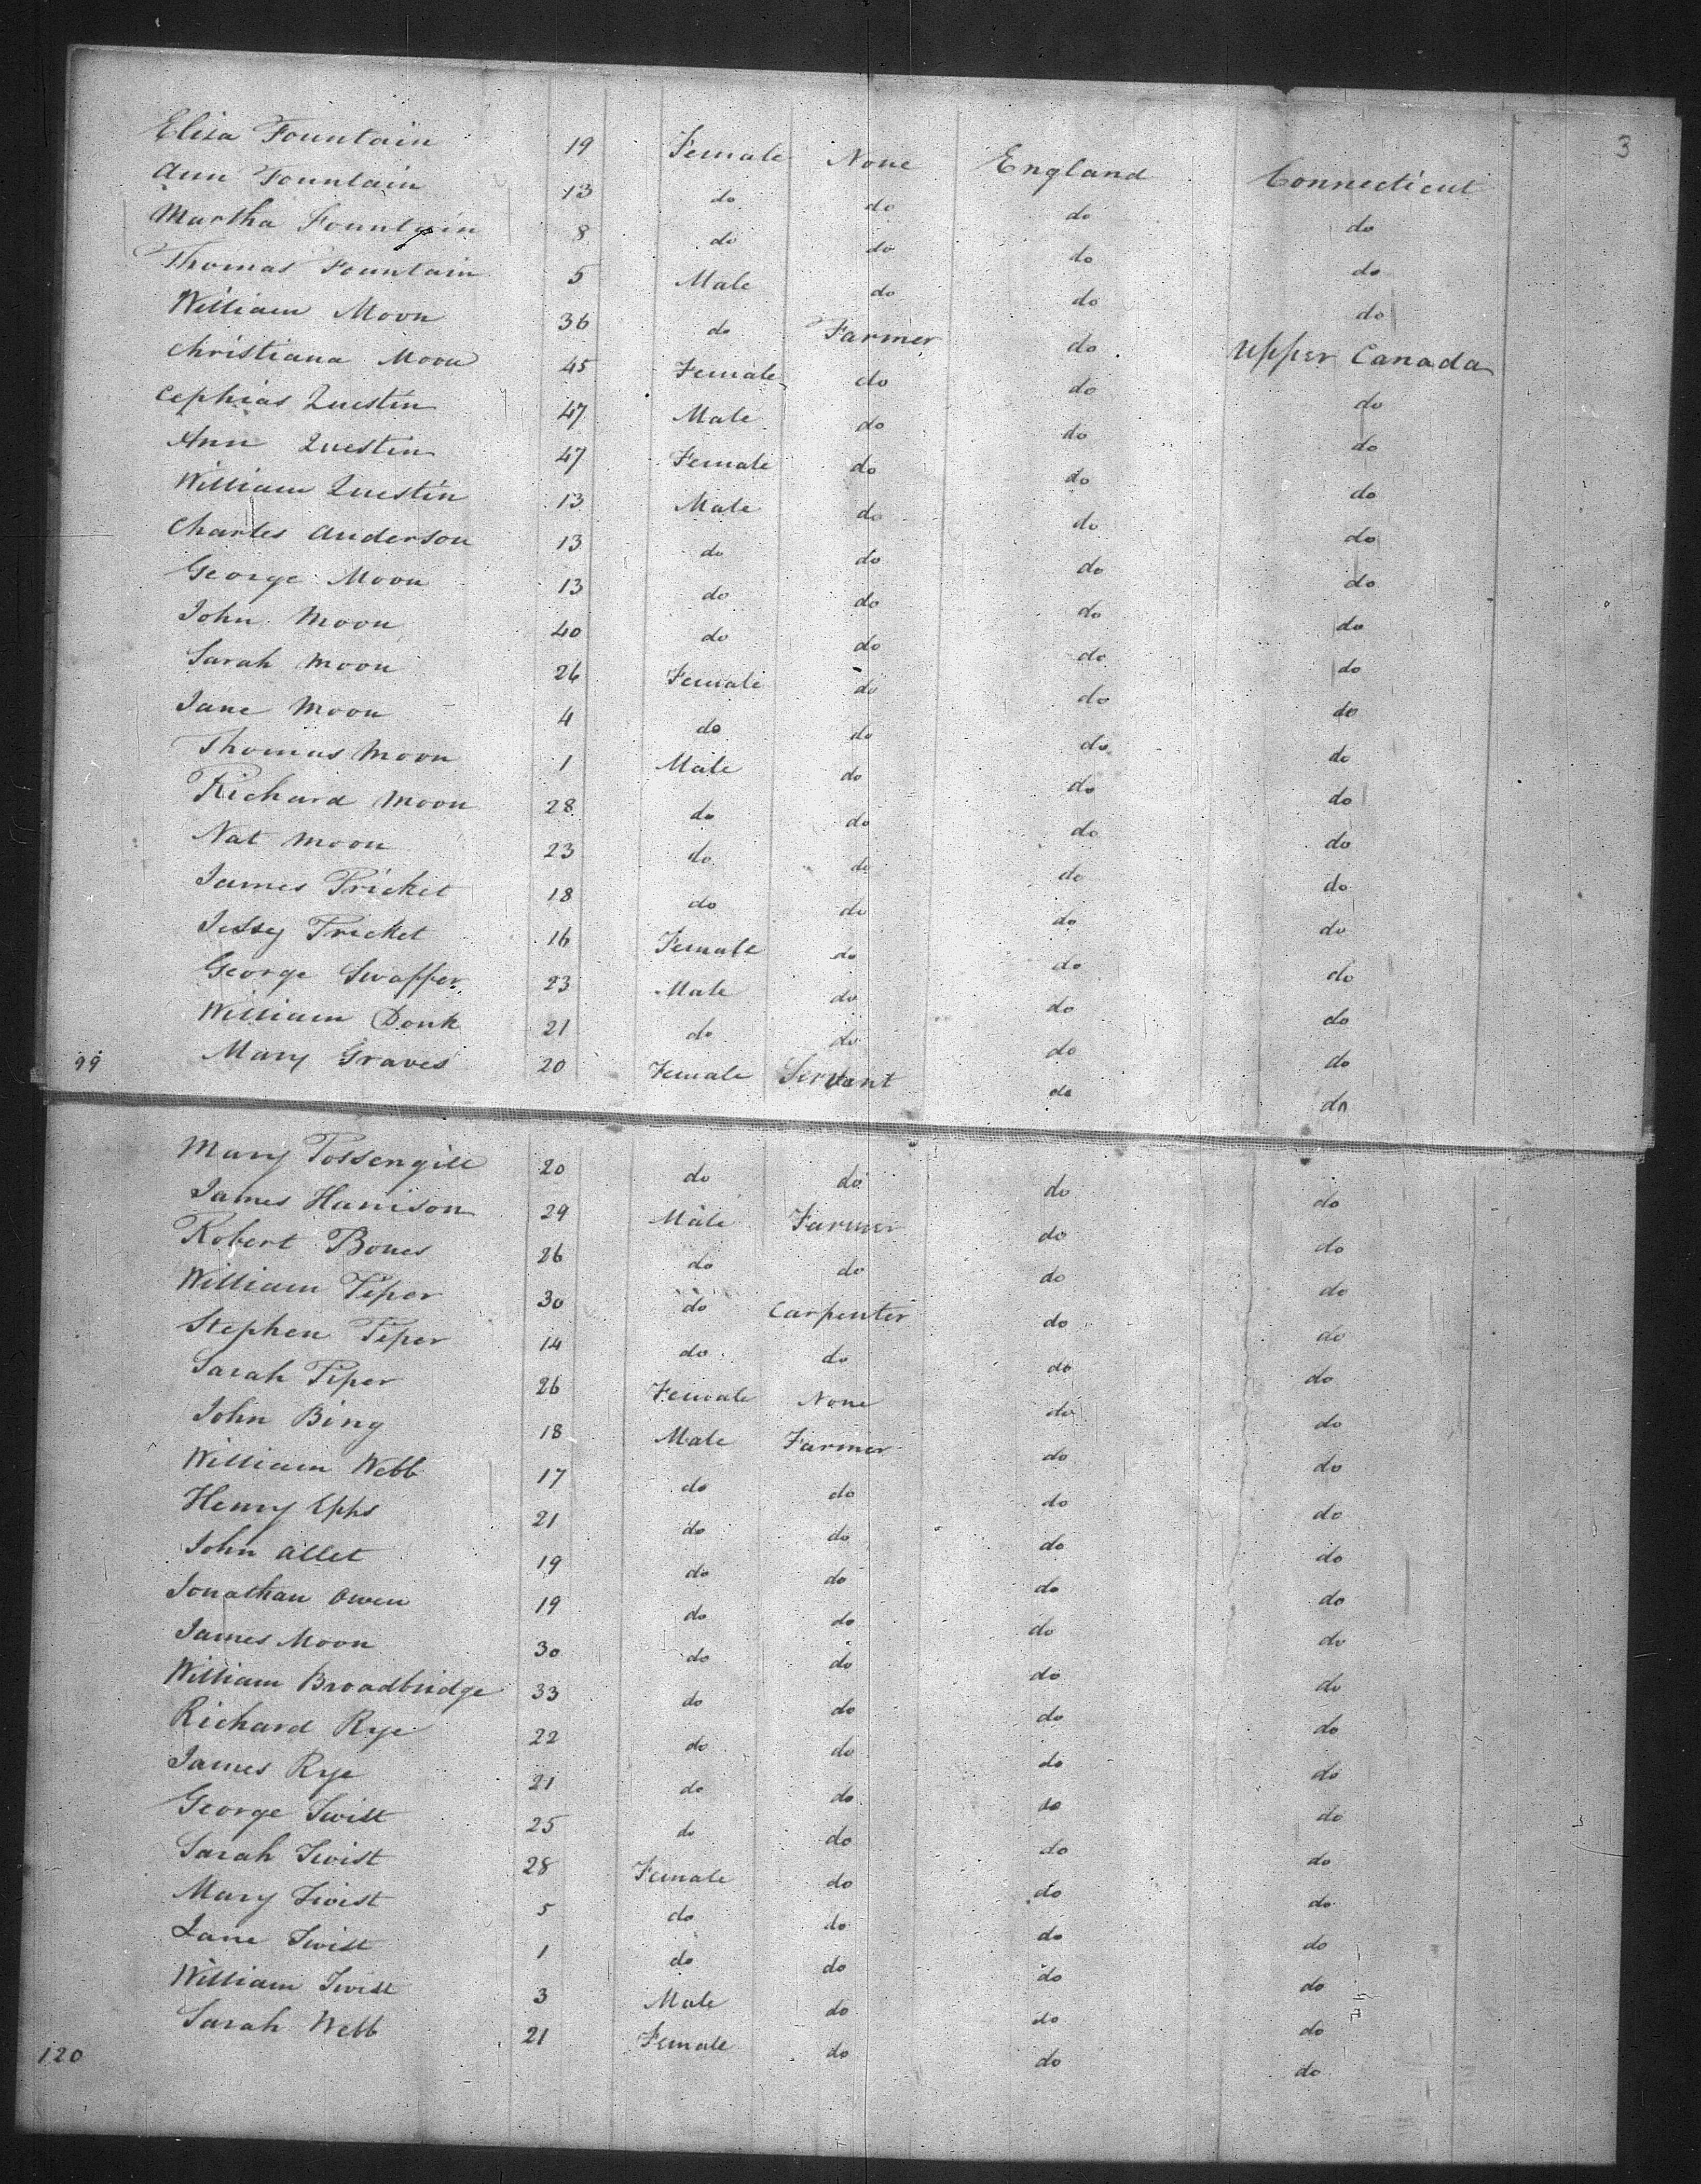 3
Eliza Fountain 19 Female None England Connecticut
Ann Fountain 13 do do do do
Martha Fountain 8 do do do do
Thomas Fountain 5 Male do do do
William Moon 36 do Farmer do Upper Canada
Christiana Moon 45 Female do do do
Cephias Questin 47 Male do do do
Ann Questin 47 Female do do do
William Questin 13 Male do do do
Charles Anderson 13 do do do do
George Moon 13 do do do do
John Moon 40 do do do do
Sarah Moon 26 Female do do do
Jane Moon 4 do do do do
Thomas Moon 1 Male do do do
Richard Moon 28 do do do do
Nat Moon 23 do do do do
James Tricket 18 do do do do
Jessy Tricket 16 Female do do do
George Swaffer 23 Male do do do
William Donk 21 do do do do
99 Mary Graves 20 Female Servant do do
Mary 20 do do do do
James Harrison 29 Male Farmer do do
Robert Bones 26 do do do do
William Piper 30 do Carpenter do do
Stephen Piper 14 do do do do
Sarah Piper 26 Female None do do
John Bing 18 Male Farmer do do
William Webb 17 do do do do
Henry Epps 21 do do do do
John Allet 19 do do do do
Jonathan Owen 19 do do do do
James Moon 30 do do do do
William Broadbridge 33 do do do do
Richard Rye 22 do do do do
James Rye 21 do do do do
George Twist 25 do do do do
Sarah Twist 28 Female do do do
Mary Twist 5 do do do do
Jane Twist 1 do do do do
William Twist 3 Male do do do
Sarah Webb 21 Female do do do
120